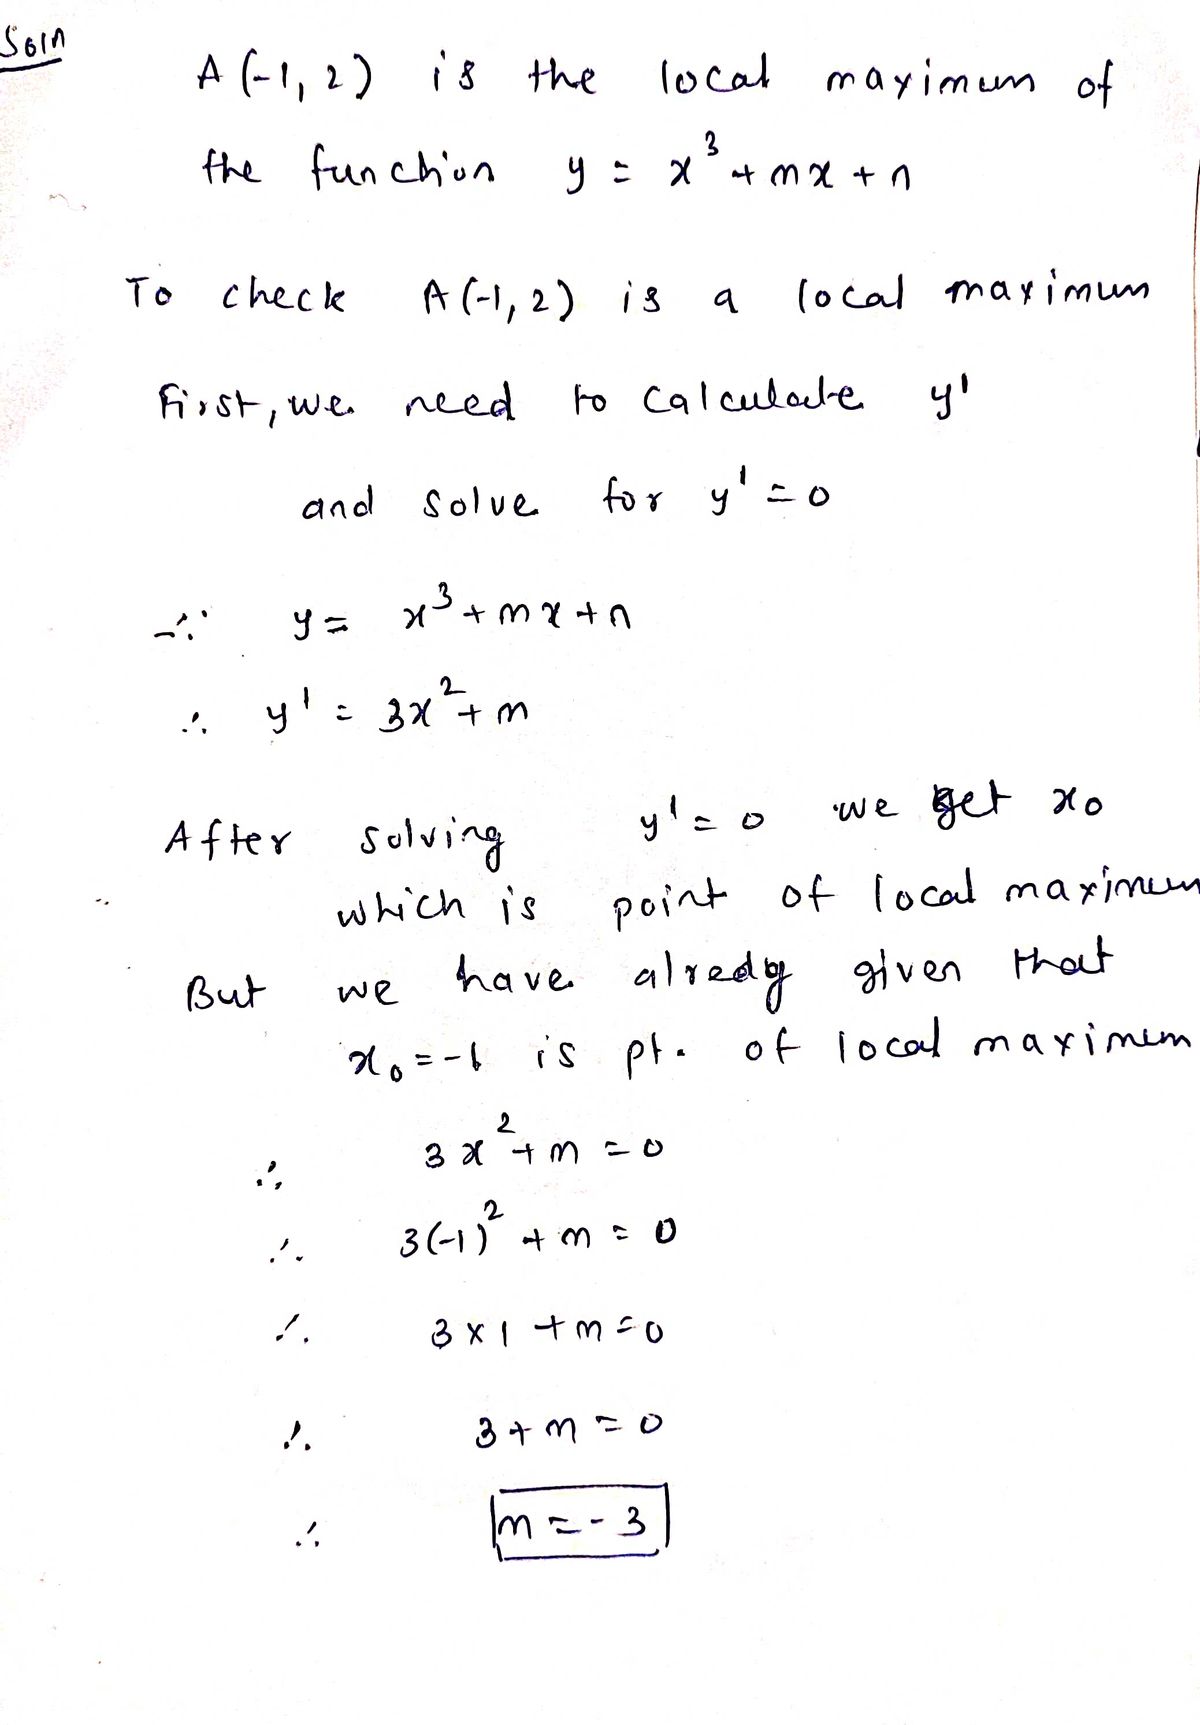 Soln
A (-1, 2) is the local maximum of
the function y = x³ + mx + n
To check A (-1, 2) is a local maximum
First, we need to calculate y'
and solve for y' = 0
∵ y = x³ + mx + n
∴ y' = 3x² + m
After solving y' = 0 we get x₀
which is point of local maximum
But we have alredy given that
x₀ = -1 is pt. of local maximum
∴ 3x² + m = 0
∴ 3(-1)² + m = 0
∴ 3 × 1 + m = 0
∴ 3 + m = 0
∴ m = - 3